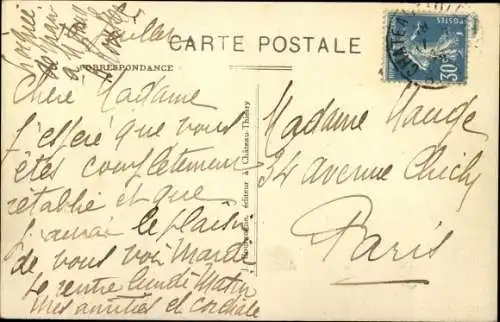 CARTE POSTALE
CORRESPONDANCE
Chère Madame
J'espère que vous
êtes complètement
rétablie et que
j'aurai le plaisir
de vous voir Mardi
Je rentre lundi Matin
Mes amitiés et cordiale
éditeur à Château-Thierry
CHATEAU
POSTES
30
Madame Mauge
34 Avenue Clichy
Paris